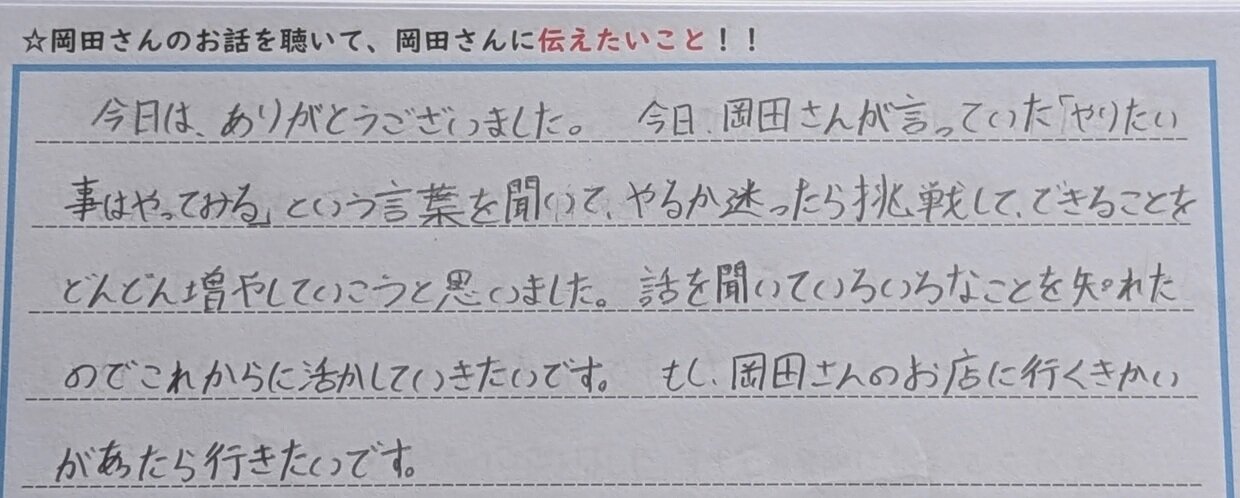 ☆岡田さんのお話を聴いて、岡田さんに伝えたいこと！！
今日は、ありがとうございました。 今日、岡田さんが言っていた「やりたい
事はやってみる」という言葉を聞いて、やるか迷ったら挑戦して、できることを
どんどん増やしていこうと思いました。話を聞いていろいろなことを知れた
のでこれからに活かしていきたいです。 もし、岡田さんのお店に行くきかい
があったら行きたいです。